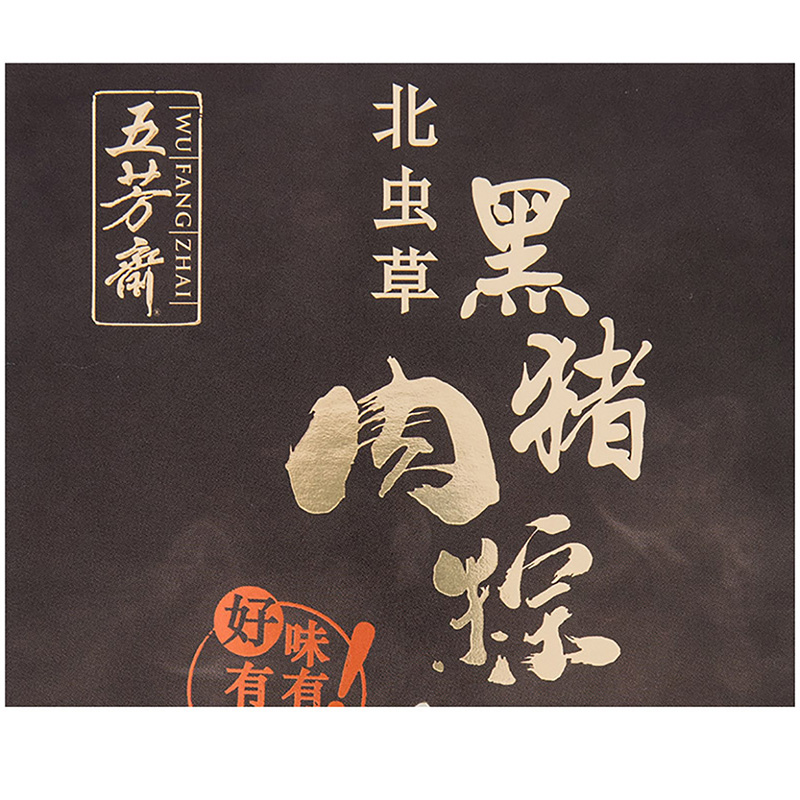 五芳斋
WU FANG ZHAI
北虫草
黑猪
肉粽
好味
有有
!